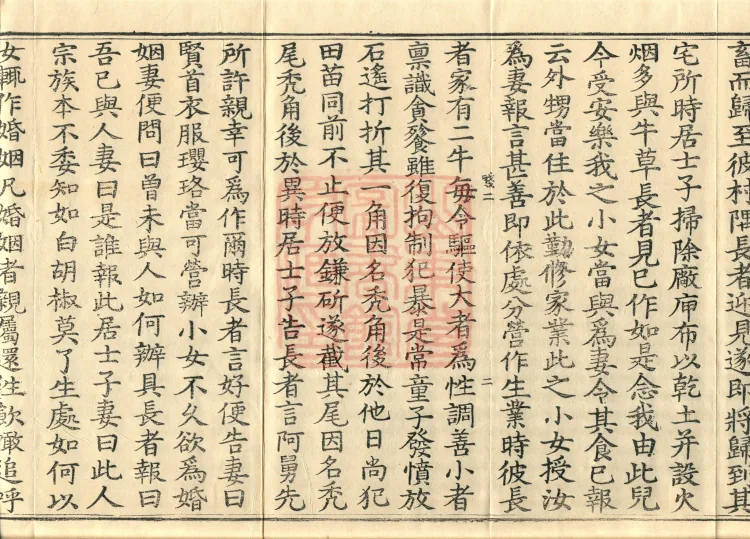 畜而歸至彼村隅長者迎見遂即將歸到其
宅所時居士子掃除廠庌布以乾土并設火
烟多與牛草長者見已作如是念我由此兒
今受安樂我之小女當與爲妻令其食已報
云外甥當住於此勤修家業此之小女授汝
爲妻報言甚善即依處分營作生業時彼長
二
者家有二牛每令驅使大者爲性調善小者
禀識貪餮雖復拘制犯暴是常童子發憤放
石遙打折其一角因名秃角後於他日尚犯
田苗同前不止便放鎌斫遂截其尾因名秃
尾秃角後於異時居士子告長者言阿舅先
所許親幸可爲作爾時長者言好便告妻曰
賢首衣服瓔珞當可營辦小女不久欲爲婚
姻妻便問曰曾未與人如何辦具長者報曰
吾已與人妻曰是誰報此居士子妻曰此人
宗族本不委知如白胡椒莫了生處如何以
女輒作婚姻凡婚姻者親屬還往飲噉追呼